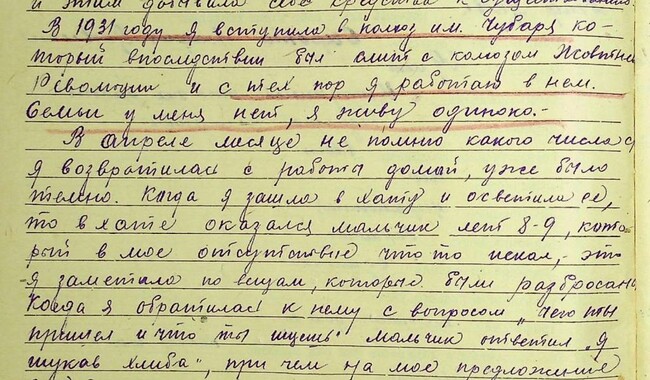 и этим добывала себе средства к существованию.
В 1931 году я вступила в колхоз им. Чубаря ко-
торый впоследствии был слит с колхозом Жовтнев
Революции и с тех пор я работаю в нем.
Семьи у меня нет, я живу одиноко.-
В апреле месяце не помню какого числа
я возвратилась с работы домой, уже было
темно. Когда я зашла в хату и осветила ее,
то в хате оказался мальчик лет 8-9, кото
рый в мое отсутствие что то искал,- это
я заметила по вещам, которые были разбросаны
Когда я обратилась к нему с вопросом „чего ты
пришел и что ты ищешь" мальчик ответил „я
шукав хлиба", при чем на мое предложение